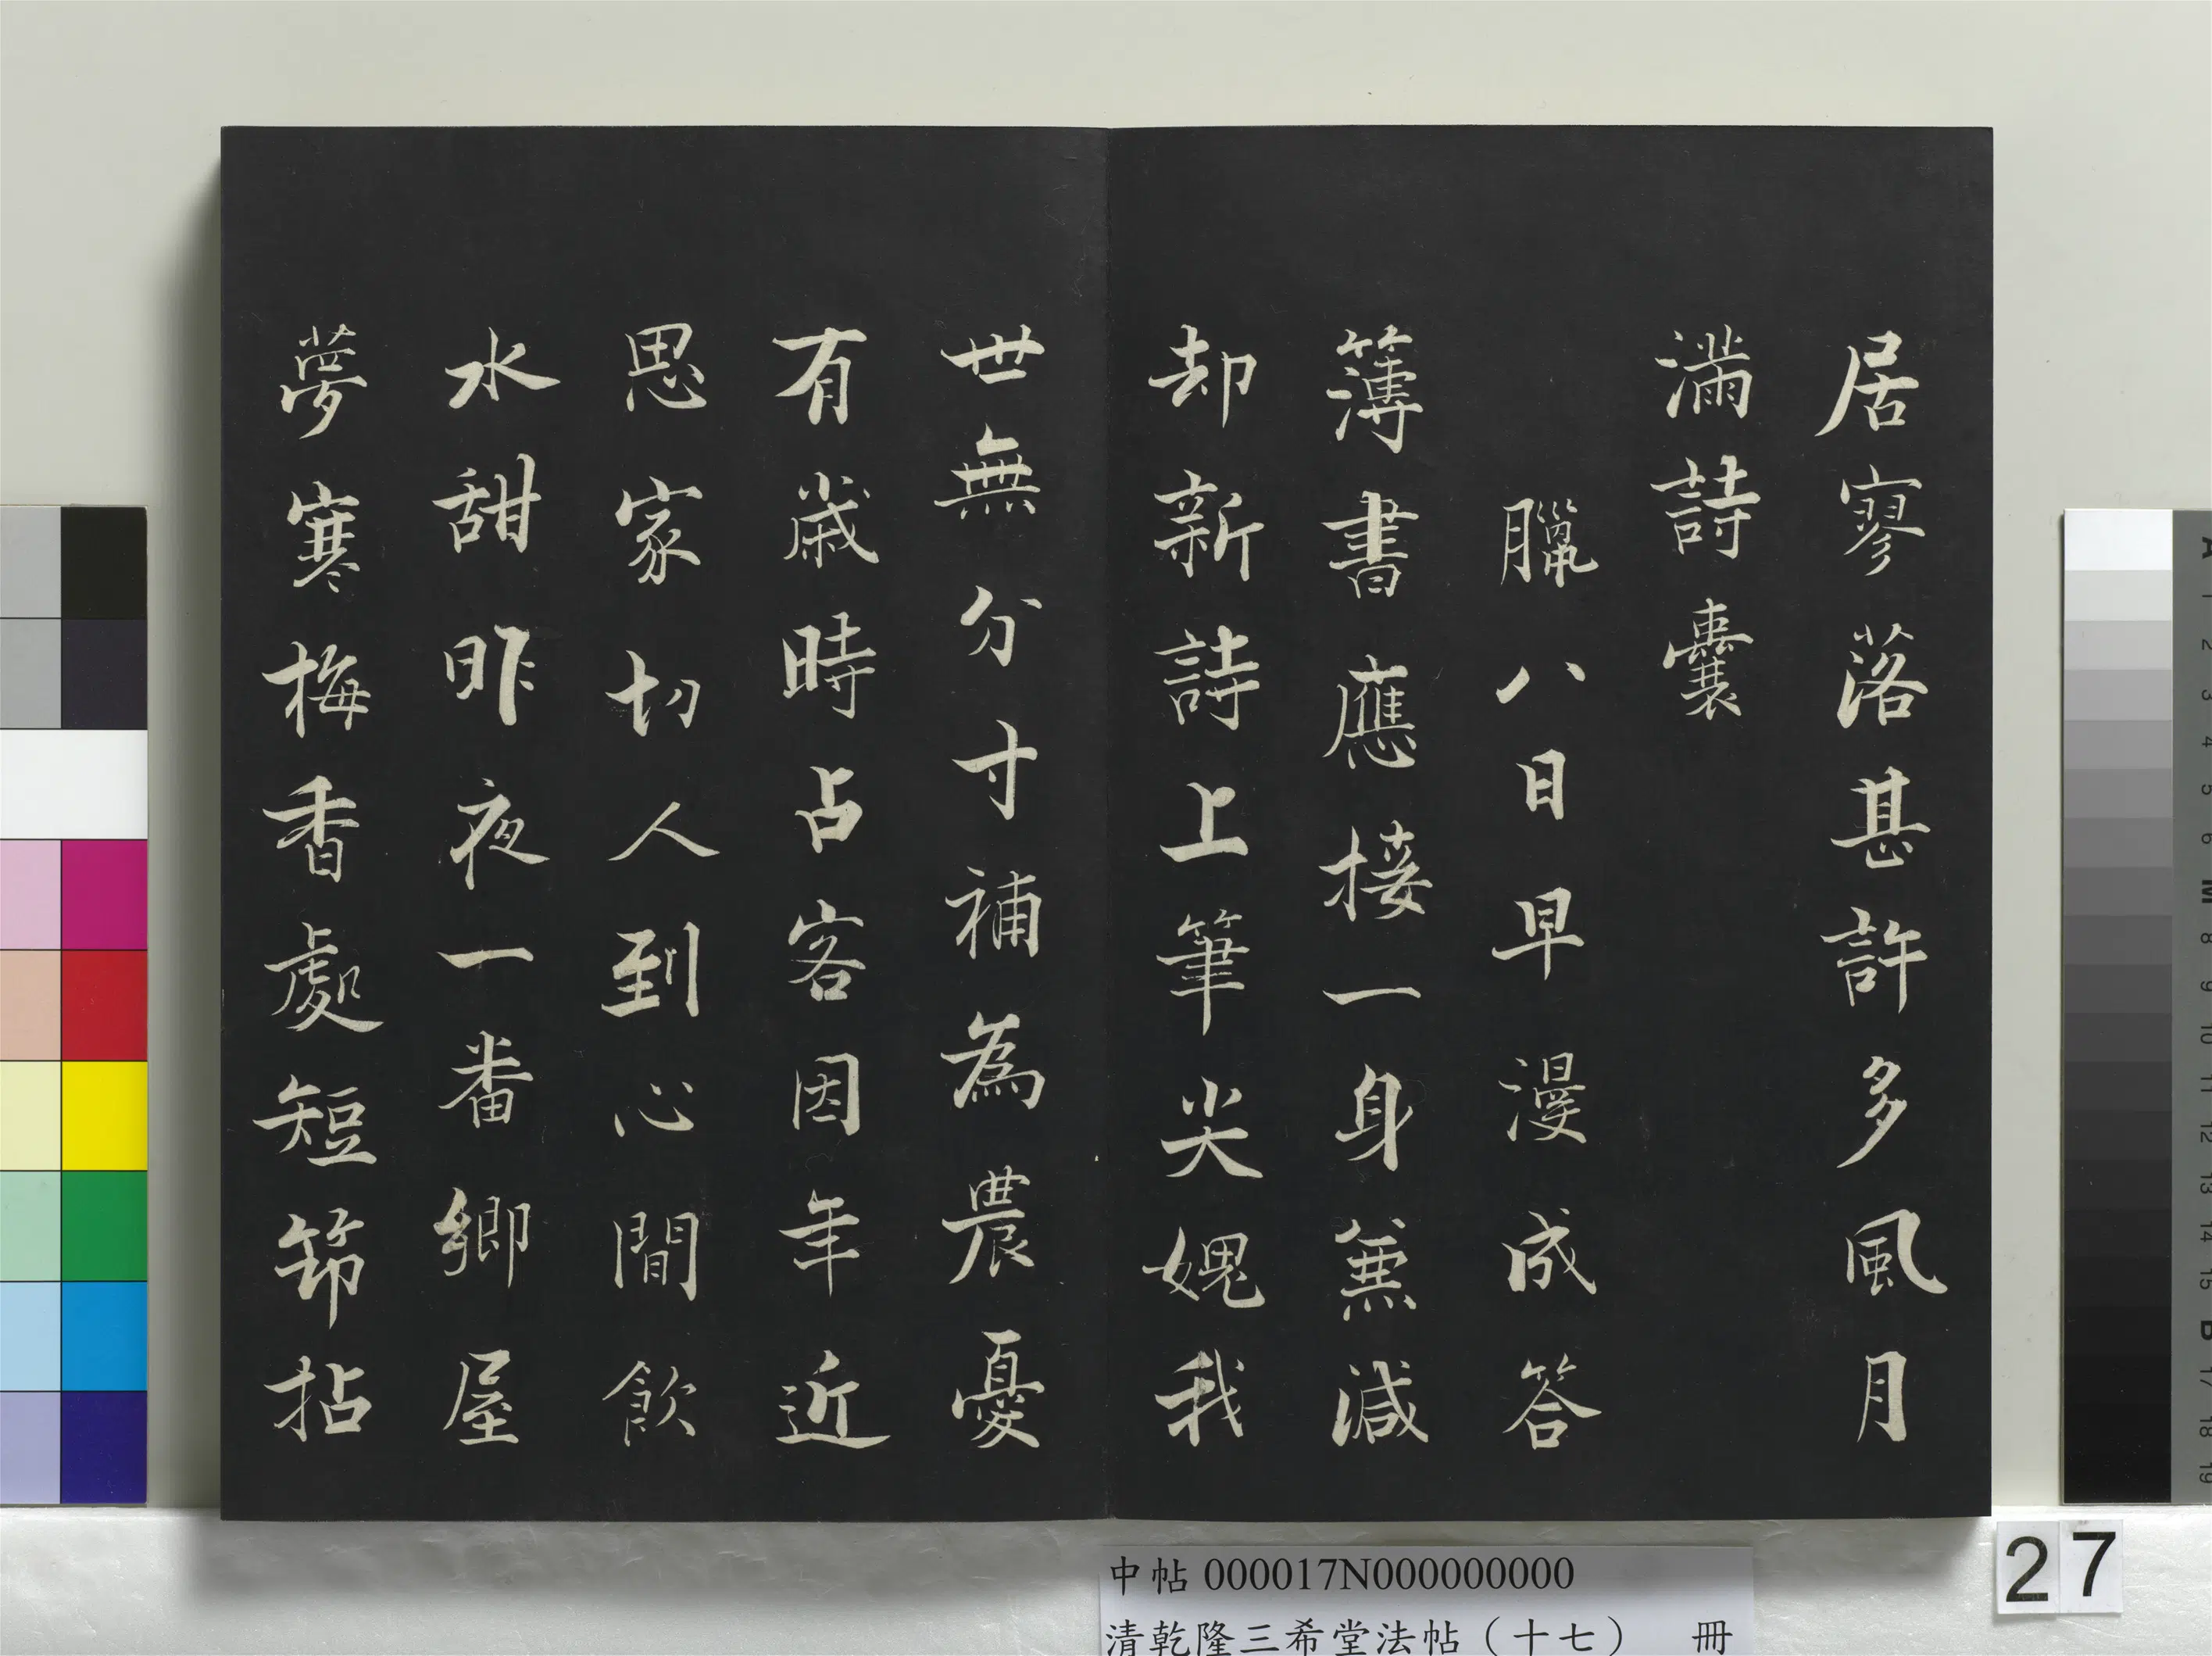 居寥落甚許多風月
滿詩囊
臘八日早漫成答
簿書應接一身無減
却新詩上筆尖媿我
世無分寸補為農憂
有歲時占客因年近
思家切人到心閒飲
水甜昨夜一番鄉屋
夢寒梅香處短笻拈
中帖 000017N000000000
清乾隆三希堂法帖（十七） 冊
27